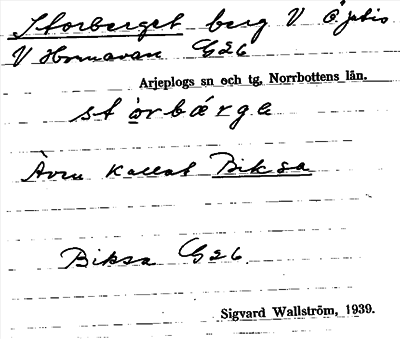 Storberget berg V Öjebio
V Hornavan G26
Arjeplogs sn och tg, Norrbottens län.
stor bärge
Även kallat Biksa
Biksa G26
Sigvard Wallström, 1939.